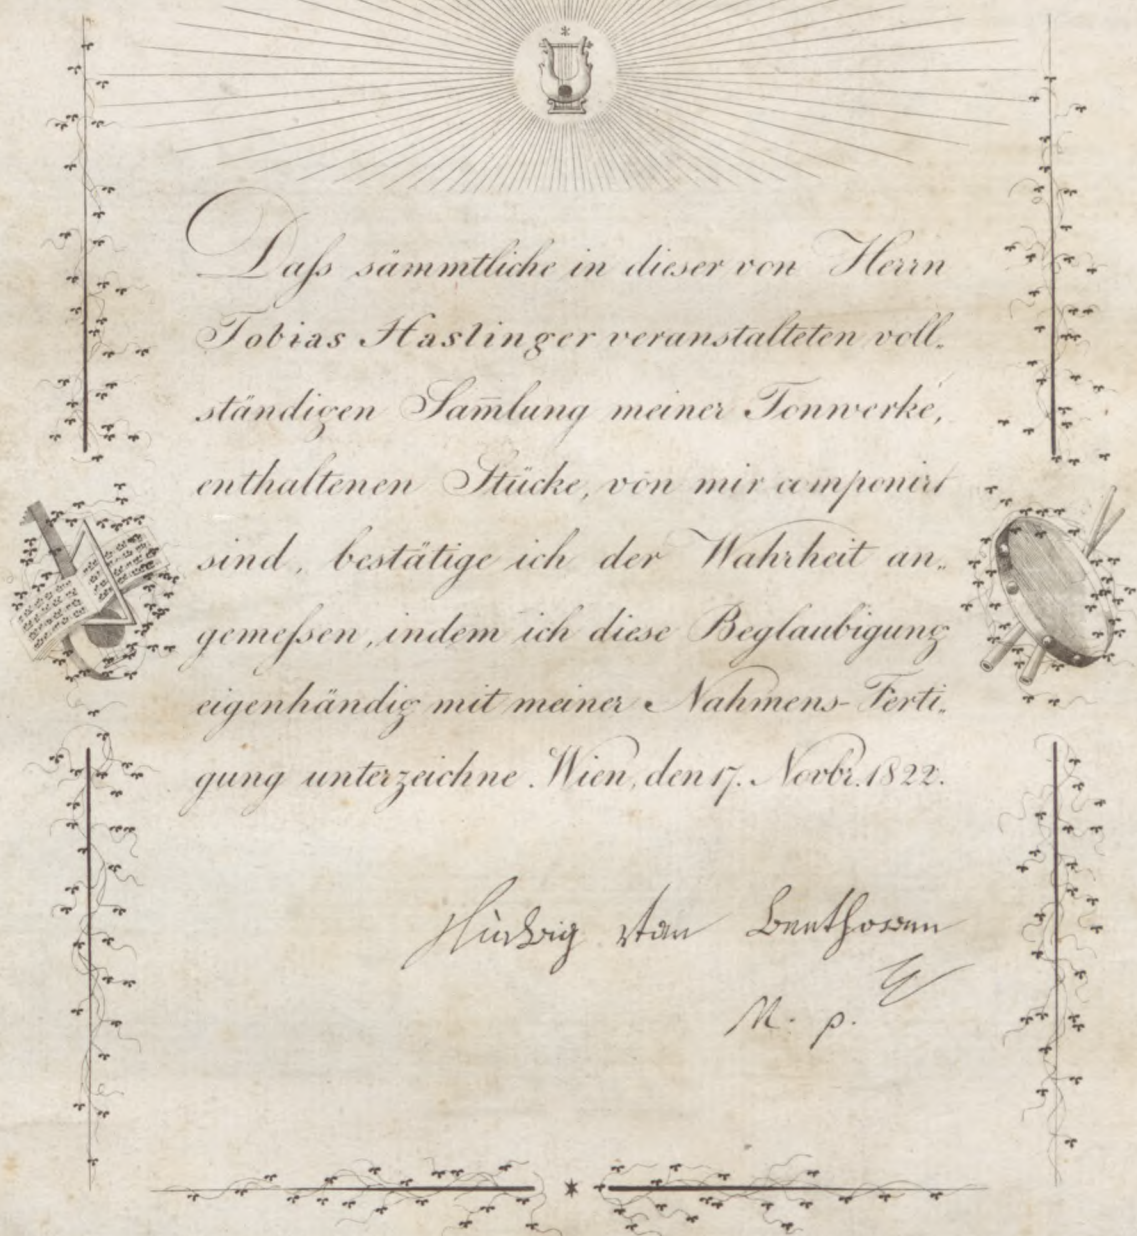 Daſs sämmtliche in dieser von Herrn
Tobias Haslinger veranstalteten voll-
ständigen Sam̄lung meiner Tonwerke,
enthaltenen Stücke, von mir componirt
sind, bestätige ich der Wahrheit an-
gemeſsen, indem ich diese Beglaubigung
eigenhändig mit meiner Nahmens-Ferti-
gung unterzeichne. Wien, den 17. Novbr. 1822.
Ludwig van Beethoven
M. p.